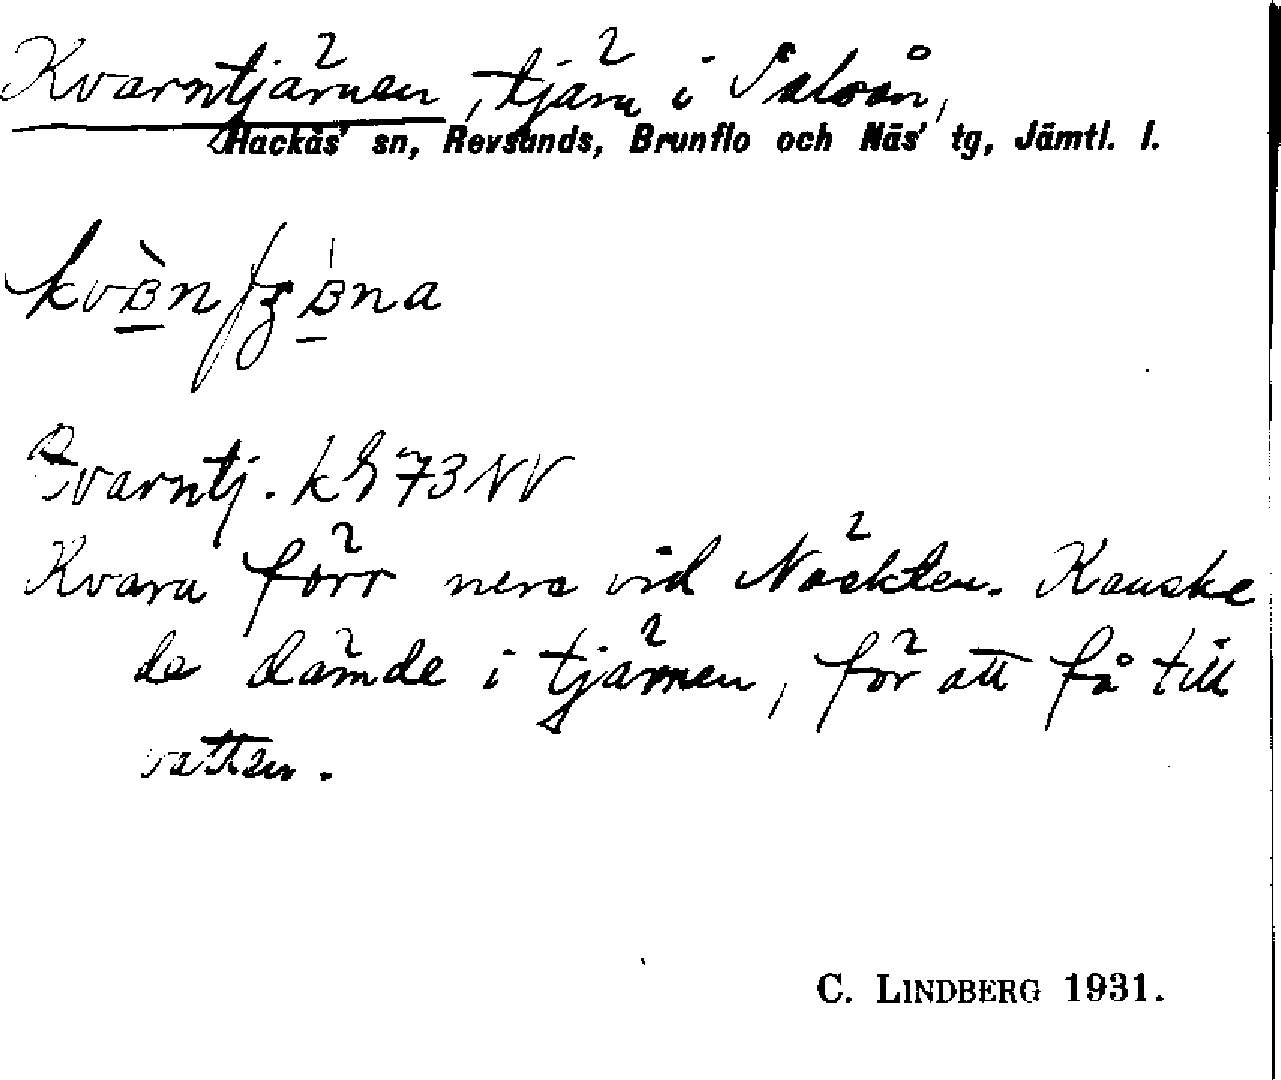 Kvarntjärnen, tjärn i Salsån,
Hackås' sn, Revsunds, Brunflo och Näs' tg, Jämtl. l.
Qvarntj. kG 73 NV
Kvarn förr nere vid Näckten. Kanske
de dämde i tjärnen, för att få till
vatten.
C. LINDBERG 1931.